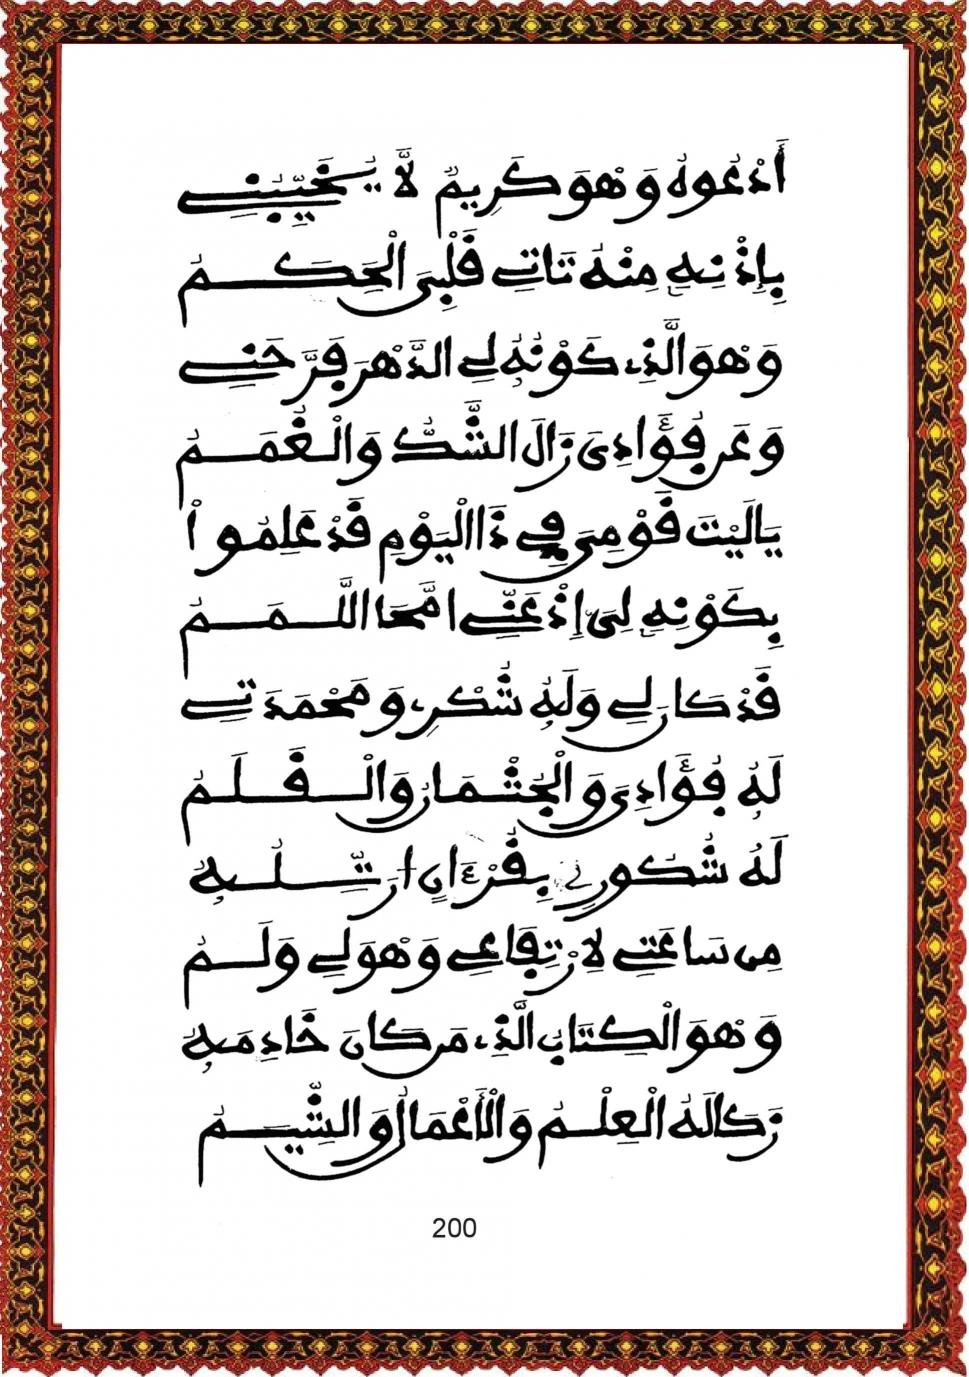 أَدْعُوهُ وَهْوَ كَرِيمٌ لَّا يُخَيِّبُنِے
بِإِذْنِهِ مِنْهُ تَاتِے قَلْبِيَ الْحِكَمُ
وَهْوَ الَّذِے كَوْنُهُ لِے الدَّهْرَ فَرَّحَنِے
وَعَن فُؤَادِىَ زَالَ الشَّكُّ وَالْغُمَمُ
يَا لَيْتَ قَوْمِىَ فِے ذَا الْيَوْمِ قَدْ عَلِمُواْ
بِكَوْنِهِ لِىَ إِذْ عَنِّے امَّحَا اللَّمَمُ
قَدْ كَانَ لِے وَلَهُ شُكْرِے وَمَحْمَدَتِے
لَهُ فُؤَادِىَ وَالْجُثْمَانُ وَالْقَلَمُ
لَهُ شُكُورِے بِقُرْءَانٍ أُرَتِّلُهُ
مِن سَاعَتِے لِارْتِفَاعِے وَهْوَ لِے وَلَمُ
وَهْوَ الْكِتَابُ الَّذِے مَن كَانَ خَادِمَهُ
زَكَا لَهُ الْعِلْمُ وَالْأَعْمَالُ وَالشِّيَمُ
200